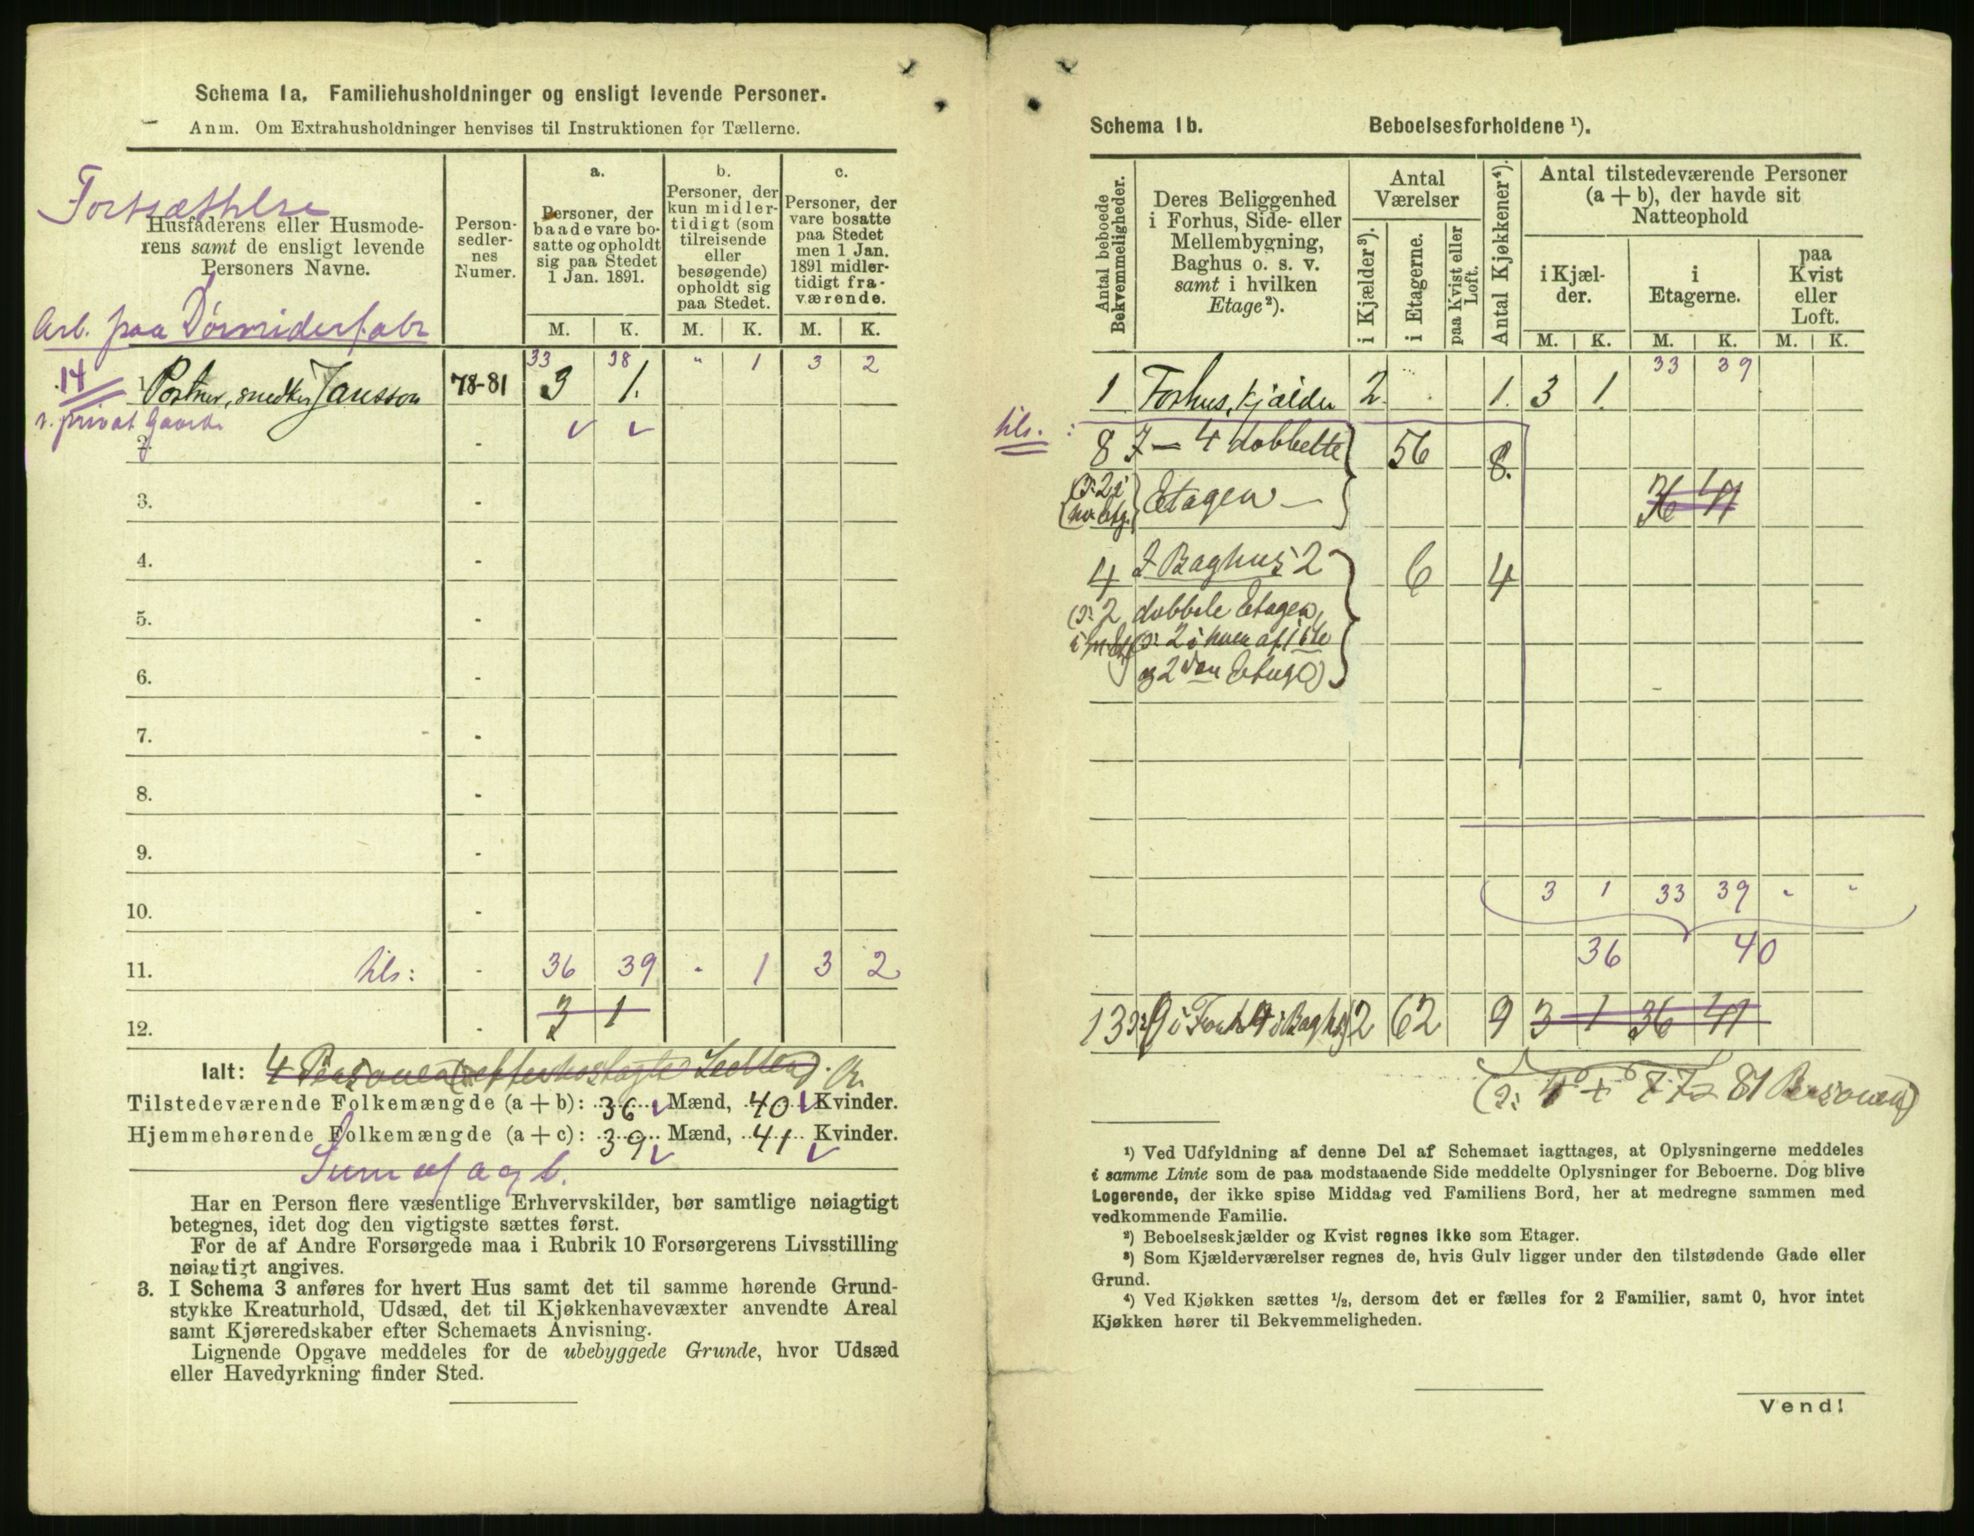 Schema 1a. Familiehusholdninger og ensligt levende Personer.
Anm. Om Extrahusholdninger henvises til Instruktionen for Tællerne.
Fortsættelse
Husfaderens eller Husmoderens samt de ensligt levende Personers Navne.
Person-sedlernes Numer.
a. Personer, der baade vare bosatte og opholdt sig paa Stedet 1 Jan. 1891.
b. Personer, der kun midlertidigt (som tilreisende eller besøgende) opholdt sig paa Stedet.
c. Personer, der vare bosatte paa Stedet men 1 Jan. 1891 midlertidigt fraværende.
M. K. M. K. M. K.
Arb. paa
33 38 " 1 3 2
14 1. Portner, snedker Jansson 78-81 3 1.
privat Gaard
2. -
3. -
4. -
5. -
6. -
7. -
8. -
9. -
10. -
11. tils: - 36 39 - 1 3 2
12. - 3 1
Ialt: 4 Personer
Tilstedeværende Folkemængde (a + b): 36 Mænd, 40 Kvinder.
Hjemmehørende Folkemængde (a + c): 39 Mænd, 41 Kvinder.
Sum af a og b.
Har en Person flere væsentlige Erhvervskilder, bør samtlige nøiagtigt
betegnes, idet dog den vigtigste sættes først.
For de af Andre Forsørgede maa i Rubrik 10 Forsørgerens Livsstilling
nøiagtigt angives.
3. I Schema 3 anføres for hvert Hus samt det til samme hørende Grund-
stykke Kreaturhold, Udsæd, det til Kjøkkenhavevæxter anvendte Areal
samt Kjøreredskaber efter Schemaets Anvisning.
Lignende Opgave meddeles for de ubebyggede Grunde, hvor Udsæd
eller Havedyrkning finder Sted.
Schema 1b. Beboelsesforholdene ¹).
Antal beboede Bekvemmeligheder.
Deres Beliggenhed i Forhus, Side- eller Mellembygning, Baghus o. s. v. samt i hvilken Etage²).
Antal Værelser
i Kjælder³). i Etagerne. paa Kvist eller Loft.
Antal Kjøkkener⁴).
Antal tilstedeværende Personer (a + b), der havde sit Natteophold
i Kjælder. i Etagerne. paa Kvist eller Loft.
M. K. M. K. M. K.
33 39
1 Forhus, kjælder 2 1. 3 1.
tils. :
8 I — 4 dobbelte 56 8.
(ɔ: 2 i Etagen — 36 41
4 I Baghus 2 6 4
(ɔ: 2 dobbele Etagen,
(ɔ: 2 i hver af 1ste
og 2den Etage)
3 1 33 39 - -
36 40
13 ɔ: 9 i Forh 4 i Baghs) 2 62 9 3 1 36 41
(ɔ: 4 + 77 = 81 Personer)
¹) Ved Udfyldning af denne Del af Schemaet iagttages, at Oplysningerne meddeles
i samme Linie som de paa modstaaende Side meddelte Oplysninger for Beboerne. Dog blive
Logerende, der ikke spise Middag ved Familiens Bord, her at medregne sammen med
vedkommende Familie.
²) Beboelseskjælder og Kvist regnes ikke som Etager.
³) Som Kjælderværelser regnes de, hvis Gulv ligger under den tilstødende Gade eller
Grund.
⁴) Ved Kjøkken sættes ½, dersom det er fælles for 2 Familier, samt 0, hvor intet
Kjøkken hører til Bekvemmeligheden.
Vend!